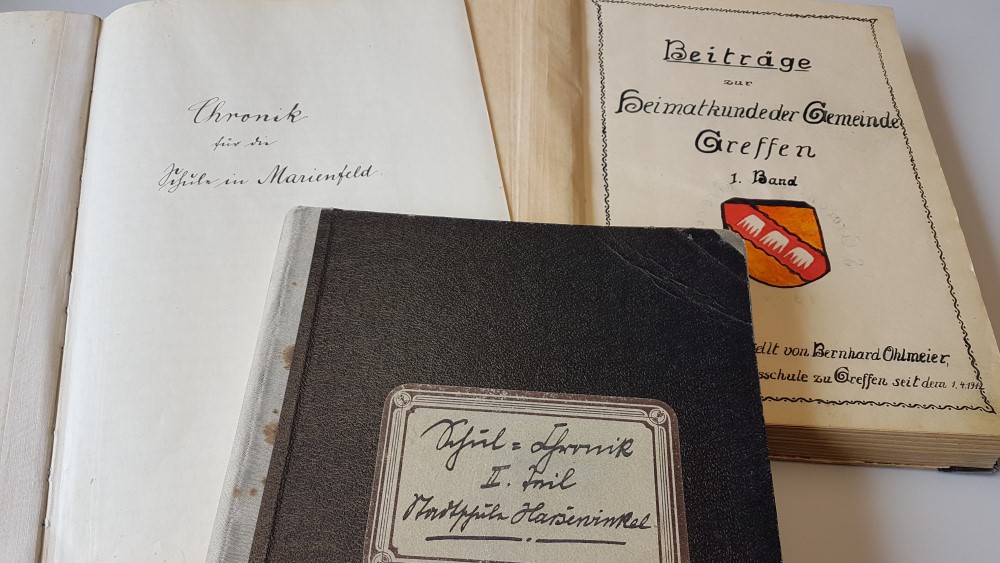 Chronik
für die
Schule in Marienfeld.
Beiträge
zur
Heimatkunde der Gemeinde
Greffen
1. Band
ellt von Bernhard Ohlmeier,
sschule zu Greffen seit dem 1.4.191
Schul = Chronik
II. Teil
Stadtschule Harsewinkel